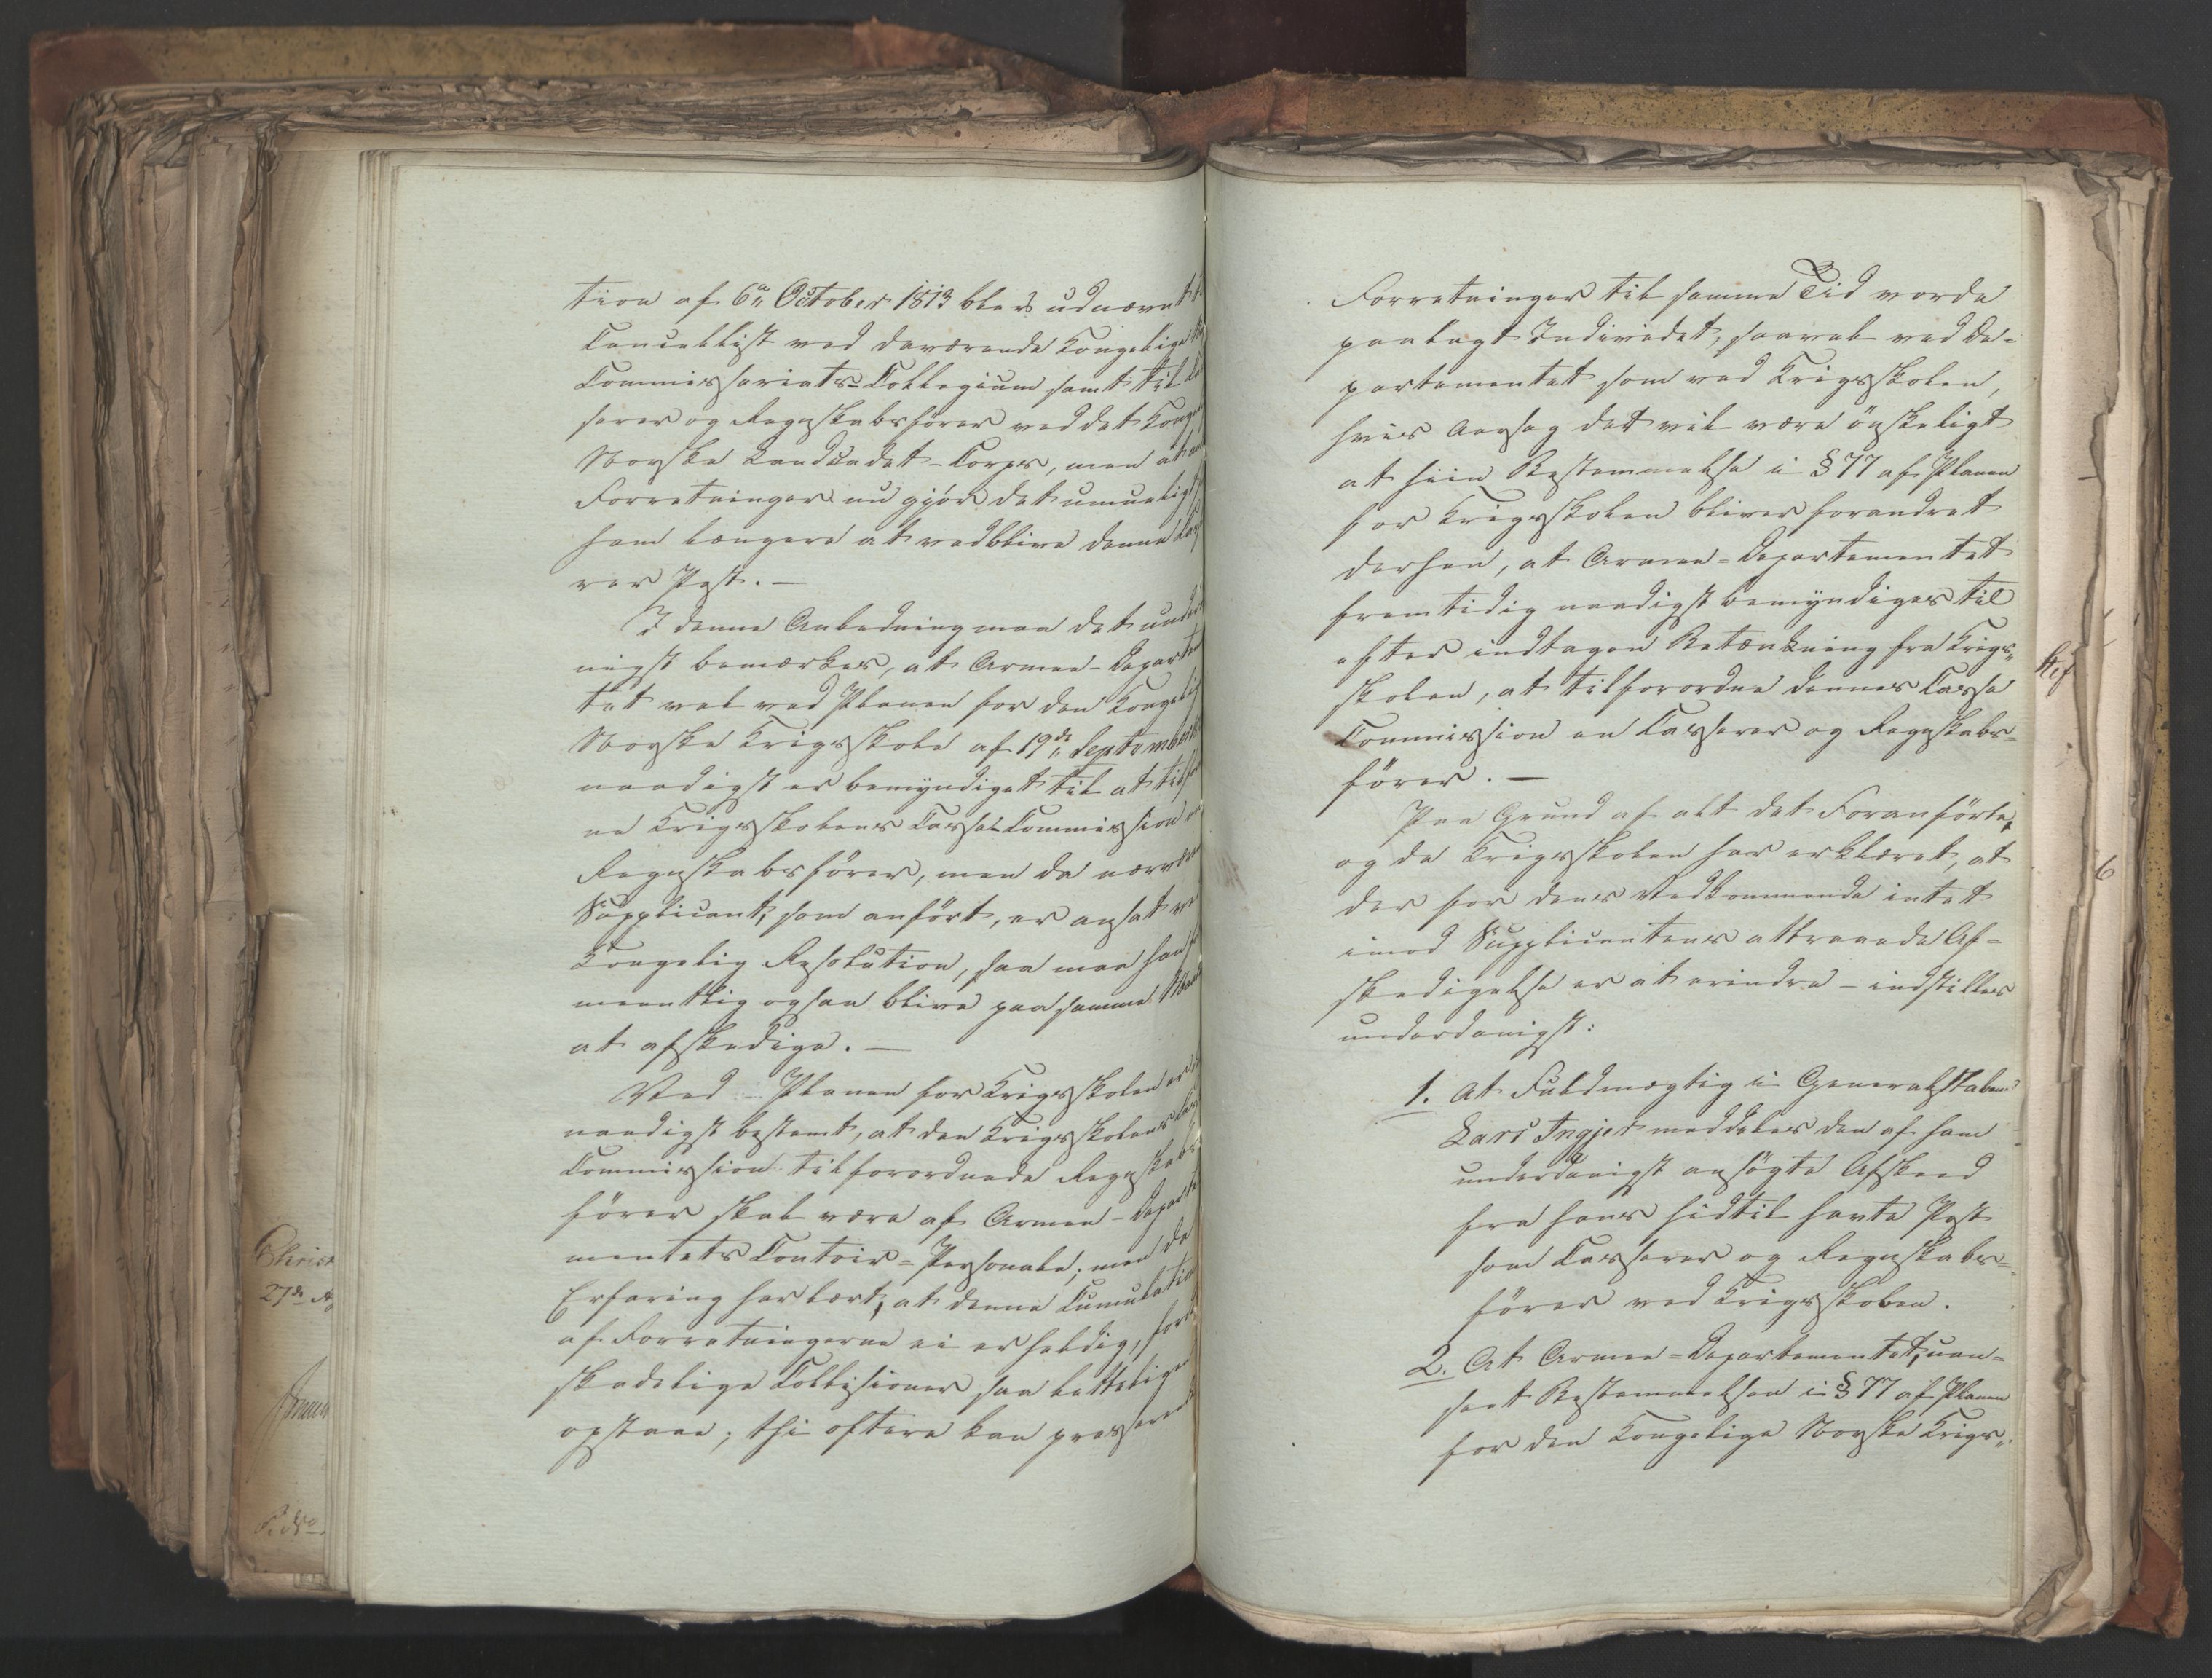 tion af 6te October 1813 blev udnævnt
Cancellist ved daværende Kongelige
Commissariats-Collegium samt til
serer og Regnskabsfører ved det
Norske Landcadet-Corps, men at
Forretninger nu gjør det umueligt
ham længere at vedblive denne
rer Post. –
I denne Anledning maa det
nigst bemærkes, at Armee-
tet vel ved Planen for den
Norske Krigsskole af 19de September
naadigst er bemyndiget til at
ne Krigsskolens Casse-Commission
Regnskabsfører, men da
Supplicant, som anført, er ansat
Kongelig Resolution, saa maa han
meentlig ogsaa blive paa samme
at afskedige. –
Ved Planen for Krigsskolen er
naadigst bestemt, at den Krigsskolens
Commission tilforordnede Regnskabs
fører skal være af Armee-
mentets Contoir-Personale; men da
Erfaring har lært, at denne Cumulation
af Forretningerne ei er heldig,
skadelige Collisioner saa letteligen
opstaae; thi oftere kan
Forretninger til samme Tid vorde
paalagt Individet, saavel ved De-
partementet som ved Krigsskolen,
hvis Aarsag det vil være ønskeligt
at hiin Bestemmelse i § 77 af Planen
for Krigsskolen bliver forandret
derhen, at Armee-Departementet
fremtidig naadigst bemyndiges til
efter indtagen Betænkning fra Krigs-
skolen, at tilforordne dennes Casse
Commission en Casserer og Regnskabs-
fører. –
Paa Grund af alt det Foranførte,
og da Krigsskolen har erklæret, at
der for dens Vedkommende intet
imod Supplicantens attraaede Af-
skedigelse er at erindre – indstilles
underdanigst:
1. At Fuldmægtig i Generalstaben
Lars Ingjer meddeles den af ham
underdanigst ansøgte Afskeed
fra hans hidtil havte Post
som Casserer og Regnskabs-
fører ved Krigsskolen.
2. At Armee-Departementet, uan-
seet Bestemmelsen i § 77 af Planen
for den Kongelige Norske Krigs-
27de
6